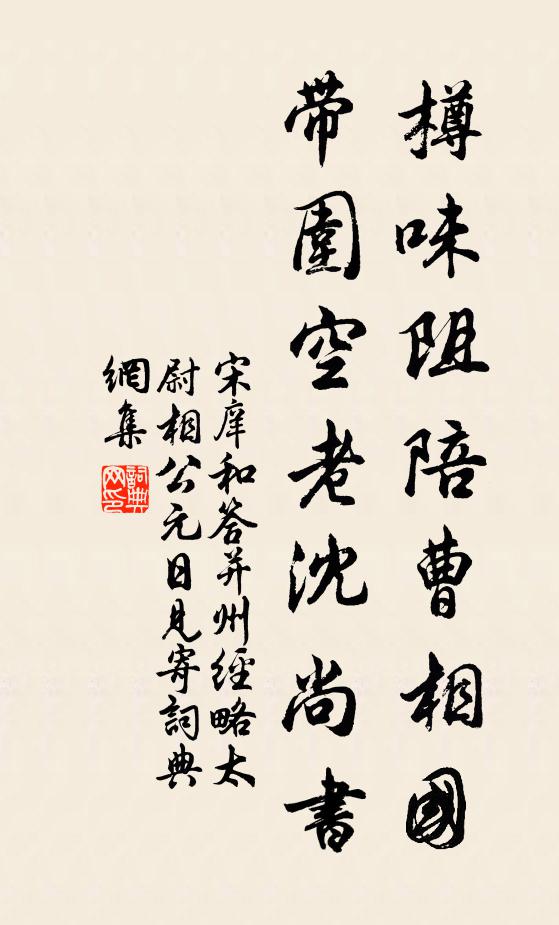 樽味阻陪曹相國
带圍空老沈尚書
宋庠和答并州經略太
尉相公元日見寄詞典
網集
詞典網印